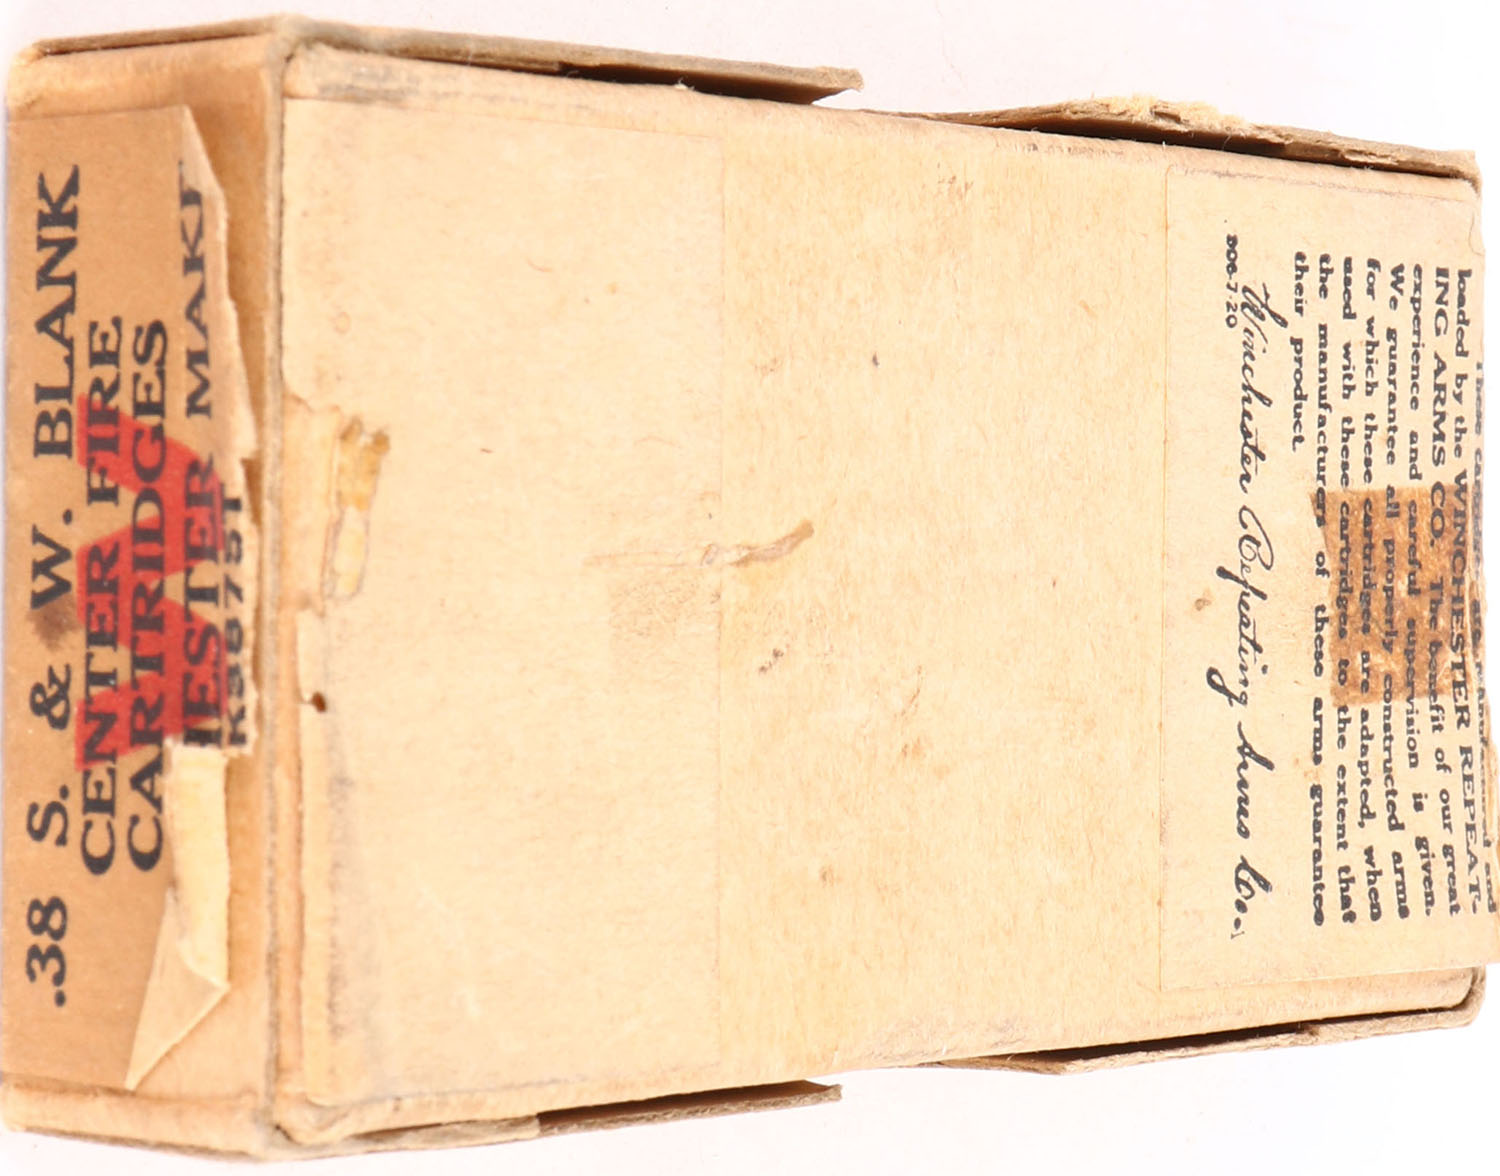 .38 S. & W. BLANK
CENTER FIRE
CARTRIDGES
ESTER MAKE
K3875T
These are manufactured and
loaded by the WINCHESTER REPEAT-
ING ARMS CO. The benefit of our great
experience and careful supervision is given.
We guarantee all properly constructed arms
for which these cartridges are adapted, when
used with these cartridges to the extent that
the manufacturers of these arms guarantee
their product.
Winchester Repeating Arms Co.